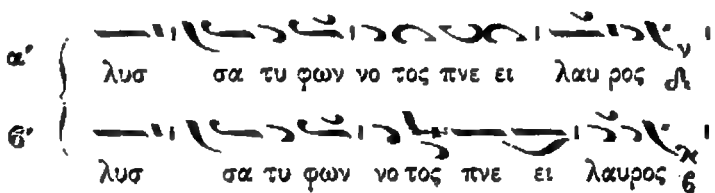 α′
λυσ σα τυ φων νο τος πνε ει λαυ ρος
ϐ′
λυσ σα τυ φων νο τος πνε ει λαυρος